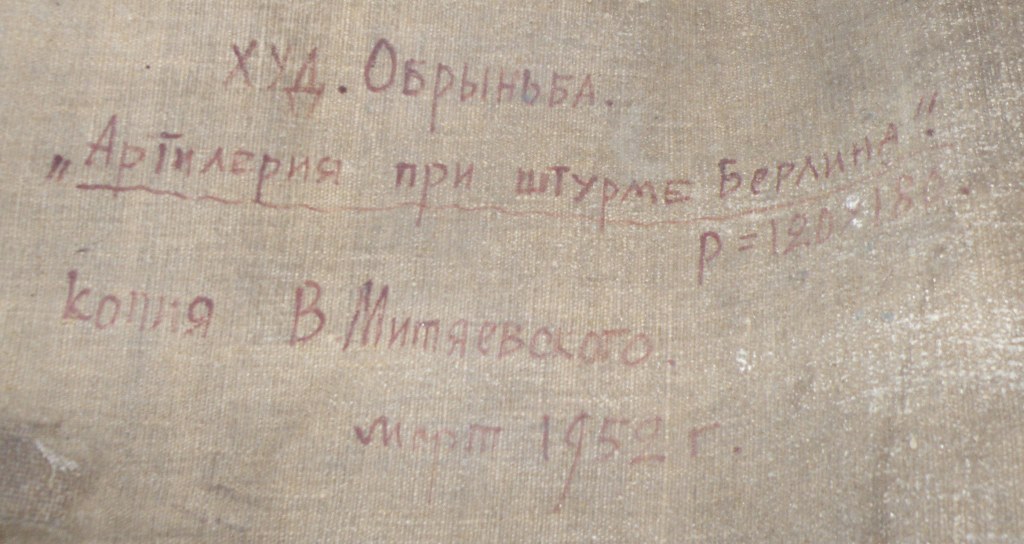 ХУД. ОБРЫНЬБА.
„Артилерия при штурме Берлина".
р = 120 × 180.
Копия В. Митяевского.
март 1952 г.